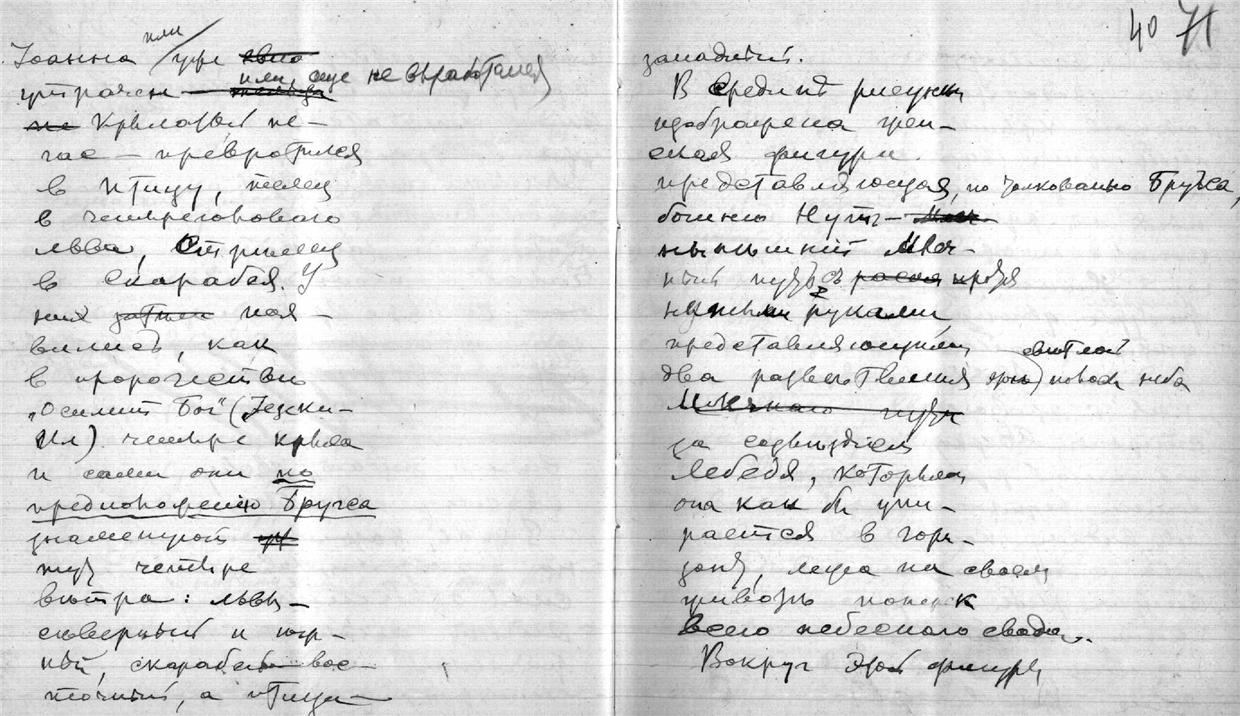 40 71
или
Іоанна / уже
или, еще не выработался)
утрачен
не Крылатый пе-
гас — превратился
в птицу, телец
в четырероговаго
льва, Стрелец
в Скарабея. У
них затем поя-
вились, как
в пророчестве
„Осилит Бог“ (Іезеки-
ил) четыре крыла
и сами они по
предположению Бругса
знаменуют
четыре
вѣтра: львы —
сѣверный и юж-
ный, скарабей вос-
точный, а птица —
западный.
В срединѣ рисунка
изображена жен-
ская фигура.
представляющая, по толкованію Бругса,
богиню Нут —
нынѣшний Млеч-
ный путь, с
руками
представляющими
светлой
два разветвления новаго неба
Млечнаго пути
за созвездием
Лебедя, которыми
она как бы упи-
рается в гори-
зонт, лежа на своем
животѣ поперек
всего небеснаго свода.
Вокруг этой фигуры